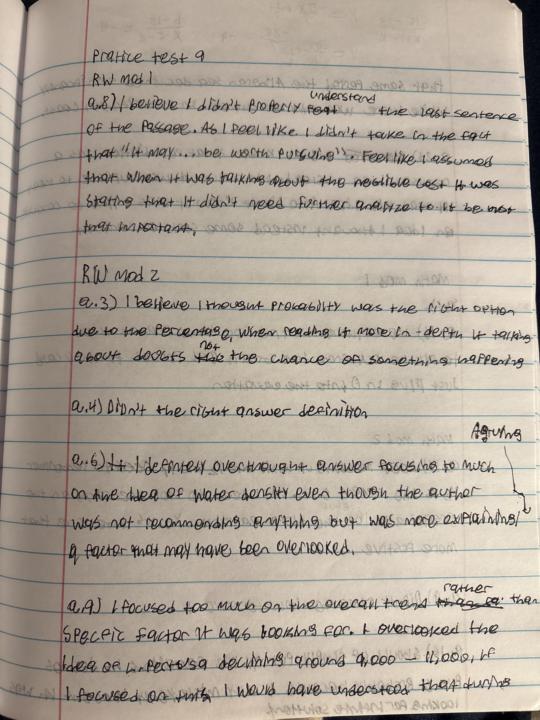 Pratice test 9
RW mod 1
Q.8) I believe I didn't properly understand the last sentence
of the Passage. As I feel like I didn't take in the fact
that "it may... be worth pursuing". Feel like I assumed
that when it was talking about the neglible cost it was
stating that it didn't need further to it be
that important.
RW mod 2
Q.3) I believe I thought probability was the right option
due to the percentage, when reading it more in-depth it talking
about doubts not the chance of something happening
Q.4) Didn't the right answer definition
Arguing
Q.6) I definitely overthought answer focusing to much
on the idea of water density even though the author
was not recommending anything but was more explaining/
a factor that may have been overlooked.
Q.9) I focused too much on the overall trend rather than
specific factor it was looking for. I overlooked the
idea of L. declining around 9,000 - 11,000, if
I focused on this I would have understood that during